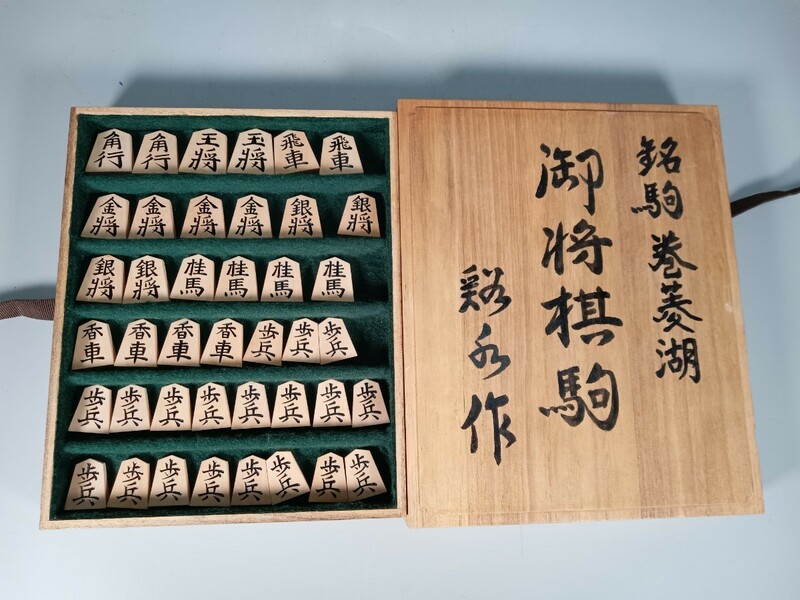 角行 角行 王将 玉将 飛車 飛車
金将 金将 金将 金将 銀将 銀将
銀将 銀将 桂馬 桂馬 桂馬 桂馬
香車 香車 香車 香車 歩兵 歩兵 歩兵
歩兵 歩兵 歩兵 歩兵 歩兵 歩兵 歩兵 歩兵
歩兵 歩兵 歩兵 歩兵 歩兵 歩兵 歩兵 歩兵
銘駒 巻菱湖
御将棋駒
谿水作